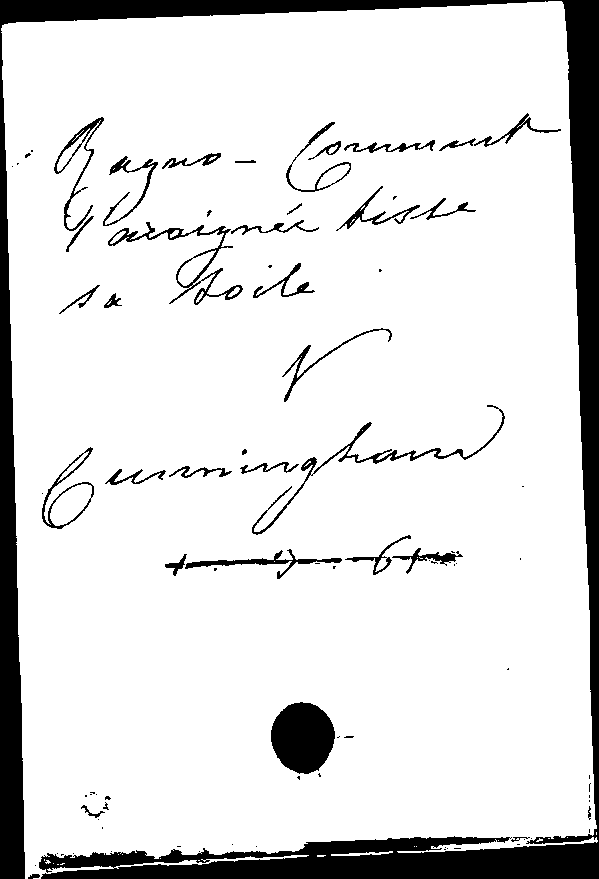 Ragno - Comment
l'araignée tisse
sa toile
V
Cunningham